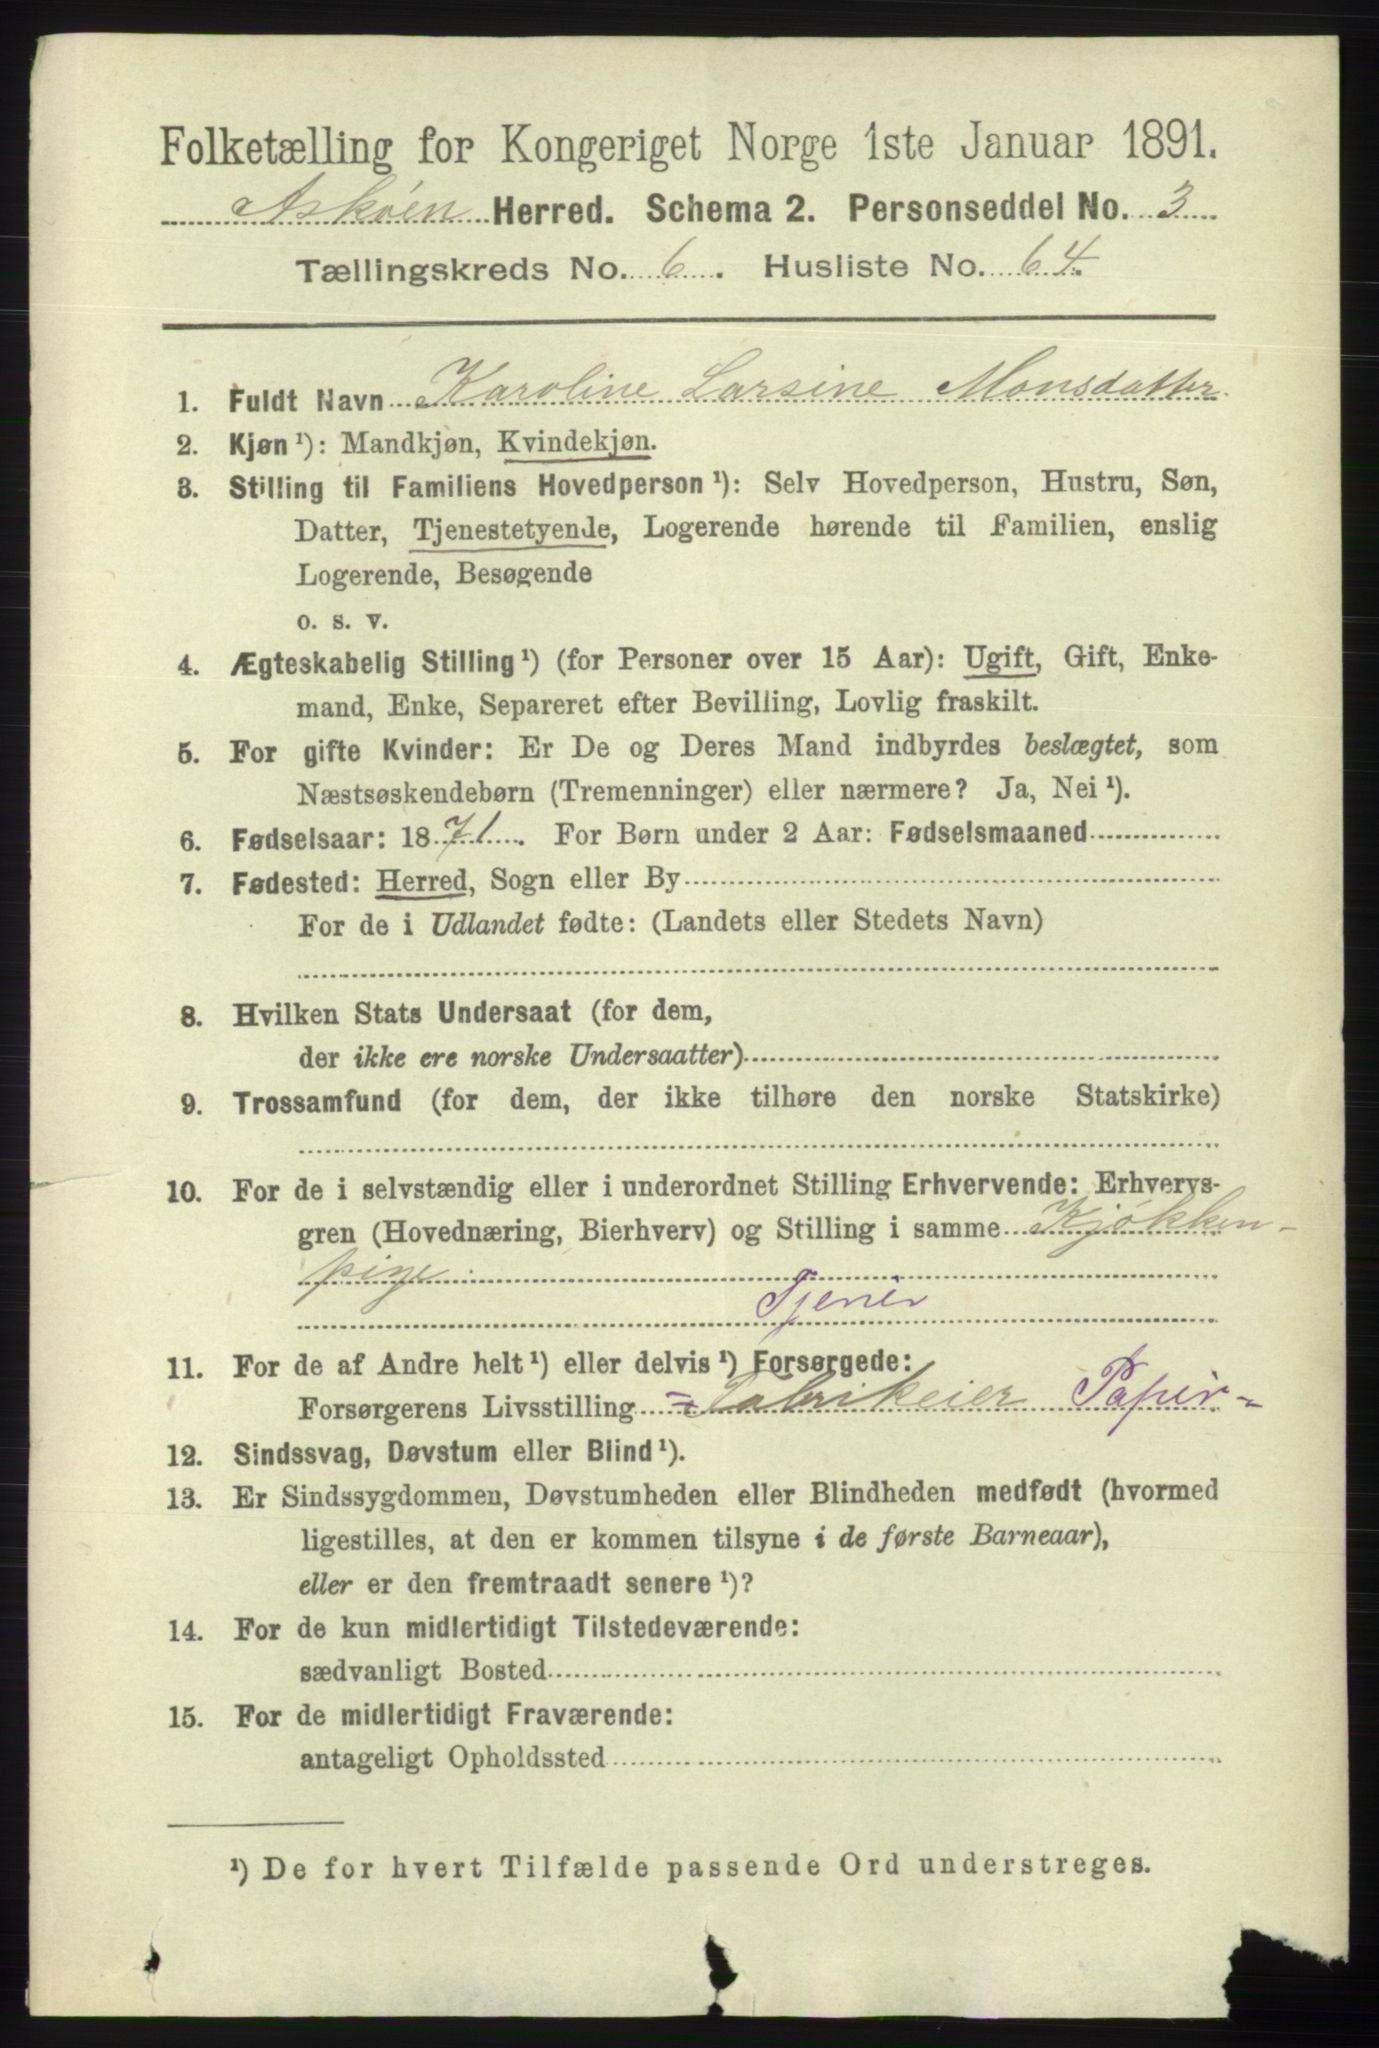 Folketælling for Kongeriget Norge 1ste Januar 1891.
Askøen Herred. Schema 2. Personseddel No. 3
Tællingskreds No. 6. Husliste No. 64.
1. Fuldt Navn Karoline Larsine Monsdatter
2. Kjøn ¹): Mandkjøn, Kvindekjøn.
3. Stilling til Familiens Hovedperson ¹): Selv Hovedperson, Hustru, Søn,
Datter, Tjenestetyende, Logerende hørende til Familien, enslig
Logerende, Besøgende
o. s. v.
4. Ægteskabelig Stilling ¹) (for Personer over 15 Aar): Ugift, Gift, Enke-
mand, Enke, Separeret efter Bevilling, Lovlig fraskilt.
5. For gifte Kvinder: Er De og Deres Mand indbyrdes beslægtet, som
Næstsøskendebørn (Tremenninger) eller nærmere? Ja, Nei ¹).
6. Fødselsaar: 1871. For Børn under 2 Aar: Fødselsmaaned
7. Fødested: Herred, Sogn eller By
For de i Udlandet fødte: (Landets eller Stedets Navn)
8. Hvilken Stats Undersaat (for dem,
der ikke ere norske Undersaatter)
9. Trossamfund (for dem, der ikke tilhøre den norske Statskirke)
10. For de i selvstændig eller i underordnet Stilling Erhvervende: Erhvervs-
gren (Hovednæring, Bierhverv) og Stilling i samme Kjøkken-
pige
Tjener
11. For de af Andre helt ¹) eller delvis ¹) Forsørgede:
Forsørgerens Livsstilling =Fabrikeier Papir=
12. Sindssvag, Døvstum eller Blind ¹).
13. Er Sindssygdommen, Døvstumheden eller Blindheden medfødt (hvormed
ligestilles, at den er kommen tilsyne i de første Barneaar),
eller er den fremtraadt senere ¹)?
14. For de kun midlertidigt Tilstedeværende:
sædvanligt Bosted
15. For de midlertidigt Fraværende:
antageligt Opholdssted
¹) De for hvert Tilfælde passende Ord understreges.